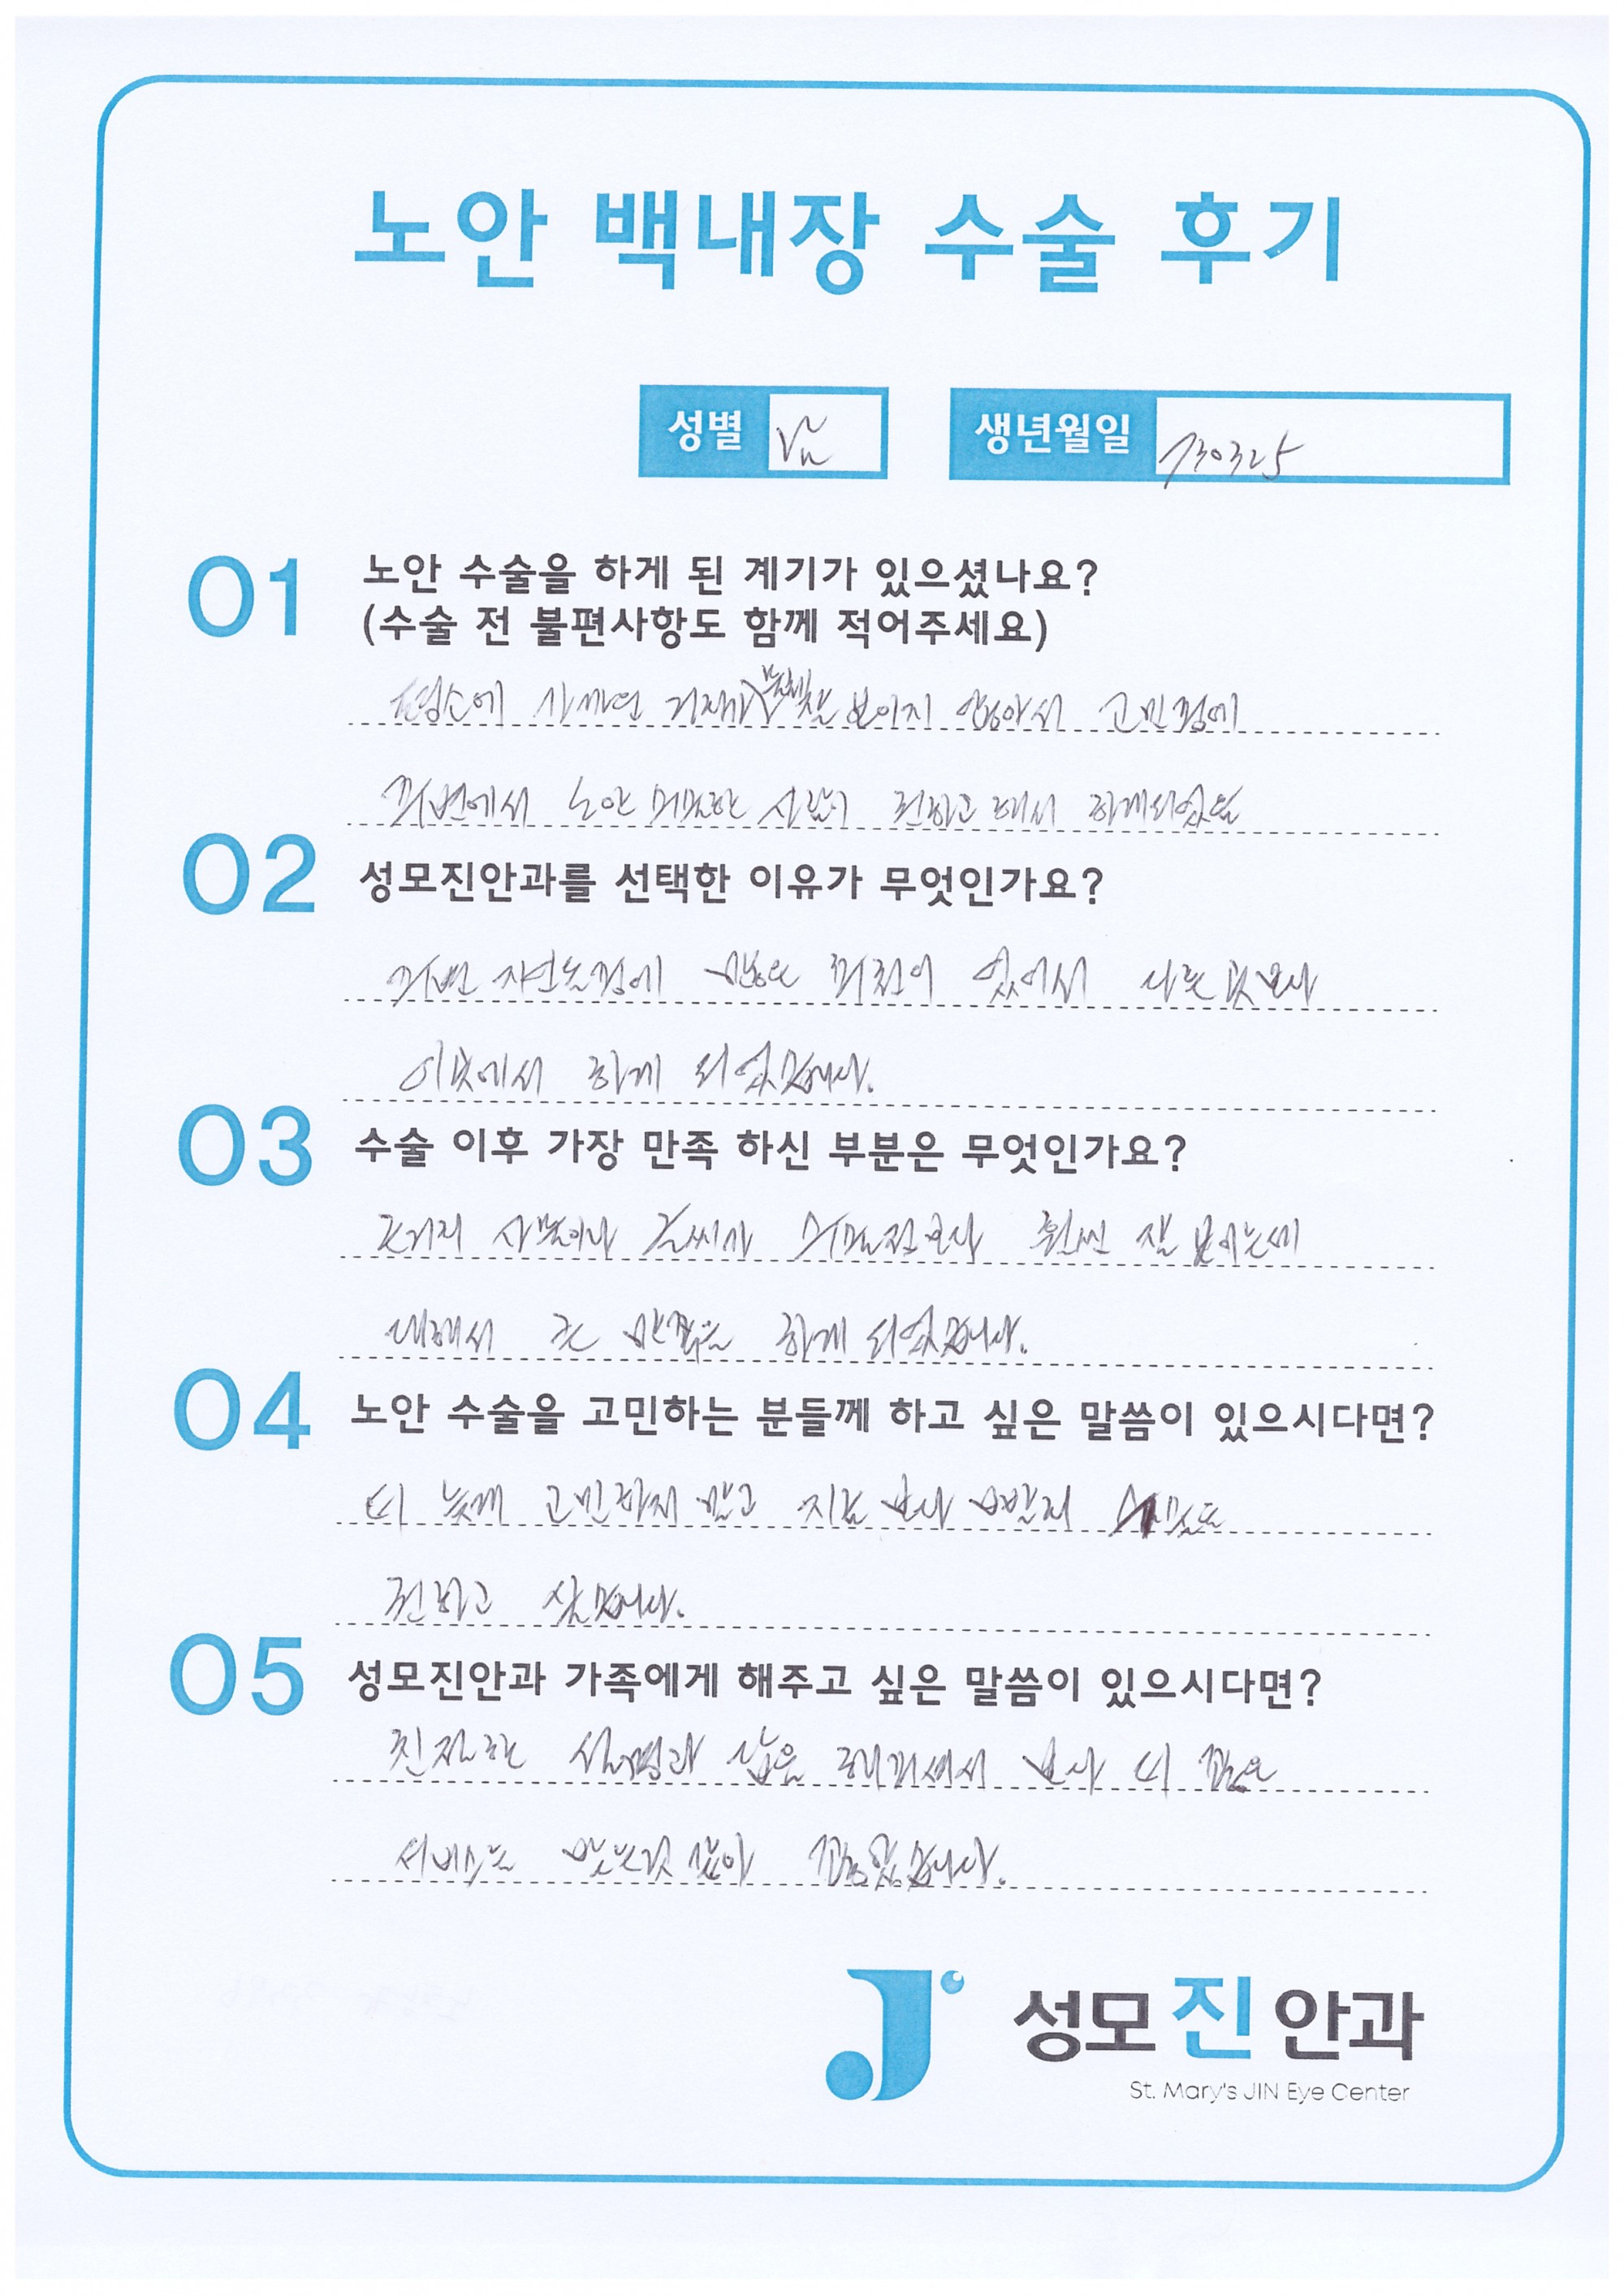 노안 백내장 수술 후기
성별 남 생년월일 730325
01 노안 수술을 하게 된 계기가 있으셨나요?
(수술 전 불편사항도 함께 적어주세요)
평소에 가까운 거리가 보이지 않아서 고민중에
주변에서 노안 수술한 사람이 권하고 해서 하게되었음
02 성모진안과를 선택한 이유가 무엇인가요?
주변 지인분중에 많은 추천이 있어서 다른 곳보다
이곳에서 하게 되었습니다.
03 수술 이후 가장 만족 하신 부분은 무엇인가요?
근거리 사물이나 글씨가 수술전보다 훨씬 잘 보이는데
대해서 큰 만족을 하게 되었습니다.
04 노안 수술을 고민하는 분들께 하고 싶은 말씀이 있으시다면?
더 늦게 고민하지 말고 지금 보다 빨리 수술을
권하고 싶습니다.
05 성모진안과 가족에게 해주고 싶은 말씀이 있으시다면?
친절한 설명과 답을 해주셔서 보다 더 좋은
서비스를 받는것 같아 좋았습니다.
성모진안과
St. Mary's JIN Eye Center